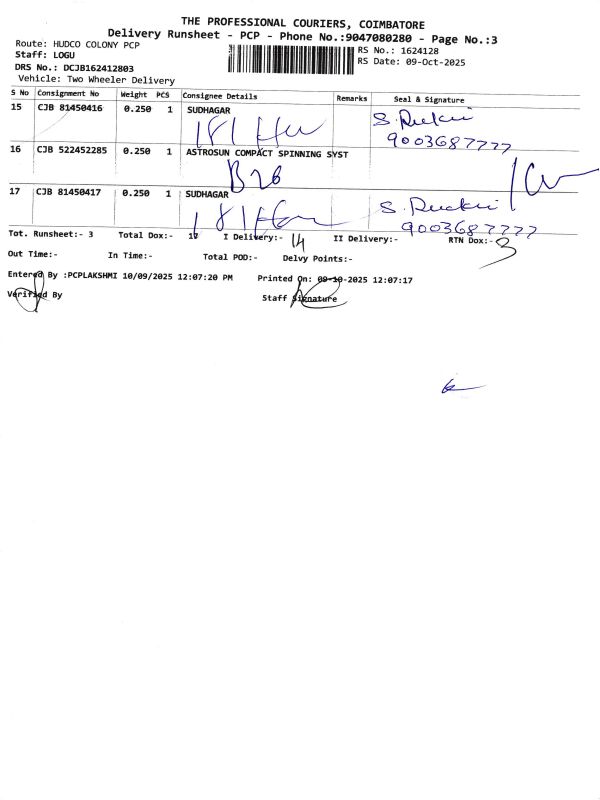 THE PROFESSIONAL COURIERS, COIMBATORE
Delivery Runsheet - PCP - Phone No.:9047080280 - Page No.:3
Route: HUDCO COLONY PCP
Staff: LOGU
RS No.: 1624128
DRS No.: DCJB162412803
RS Date: 09-Oct-2025
Vehicle: Two Wheeler Delivery
S No Consignment No Weight PCS Consignee Details Remarks Seal & Signature
15 CJB 81450416 0.250 1 SUDHAGAR
9003687777
16 CJB 522452285 0.250 1 ASTROSUN COMPACT SPINNING SYST
B26
17 CJB 81450417 0.250 1 SUDHAGAR
9003687777
Tot. Runsheet:- 3 Total Dox:- 17 I Delivery:- 14 II Delivery:- RTN Dox:- 3
Out Time:- In Time:- Total POD:- Delvy Points:-
Entered By :PCPLAKSHMI 10/09/2025 12:07:20 PM Printed On: 09-10-2025 12:07:17
Verified By Staff Signature